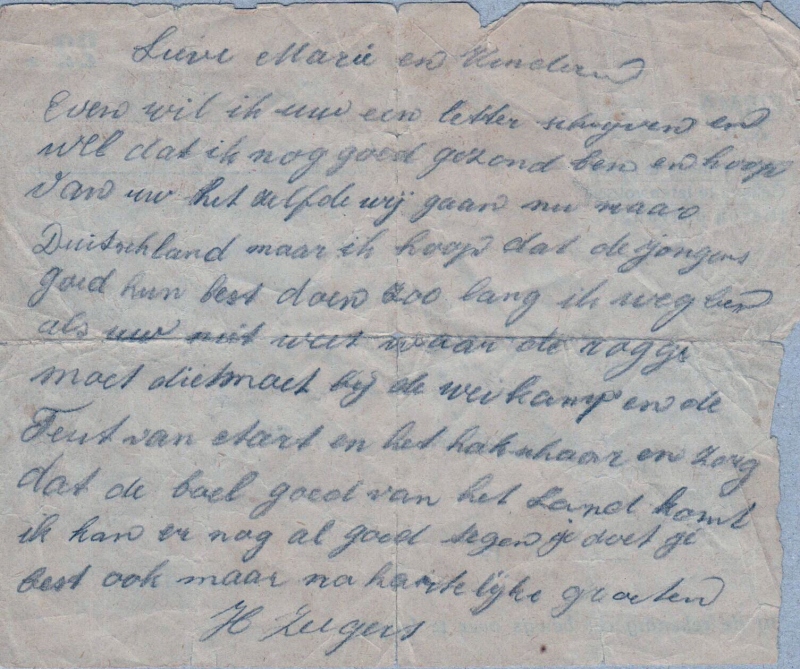 Lieve Marie en Kinderen
Even wil ik uw een letter schrijven en
wel dat ik nog goed gezond ben en hoop
van uw het zelfde wij gaan nu naar
Duitschland maar ik hoop dat de jongens
goed hun best doen zoo lang ik weg ben
als uw niet weet waar de rogge
moet die moet bij de weikamp en de
Teut van Aart en het hakschaar en zorg
dat de boel goed van het Land komt
ik kan er nog al goed tegen je doet je
best ook maar na hartelijke groeten
H Zeegers